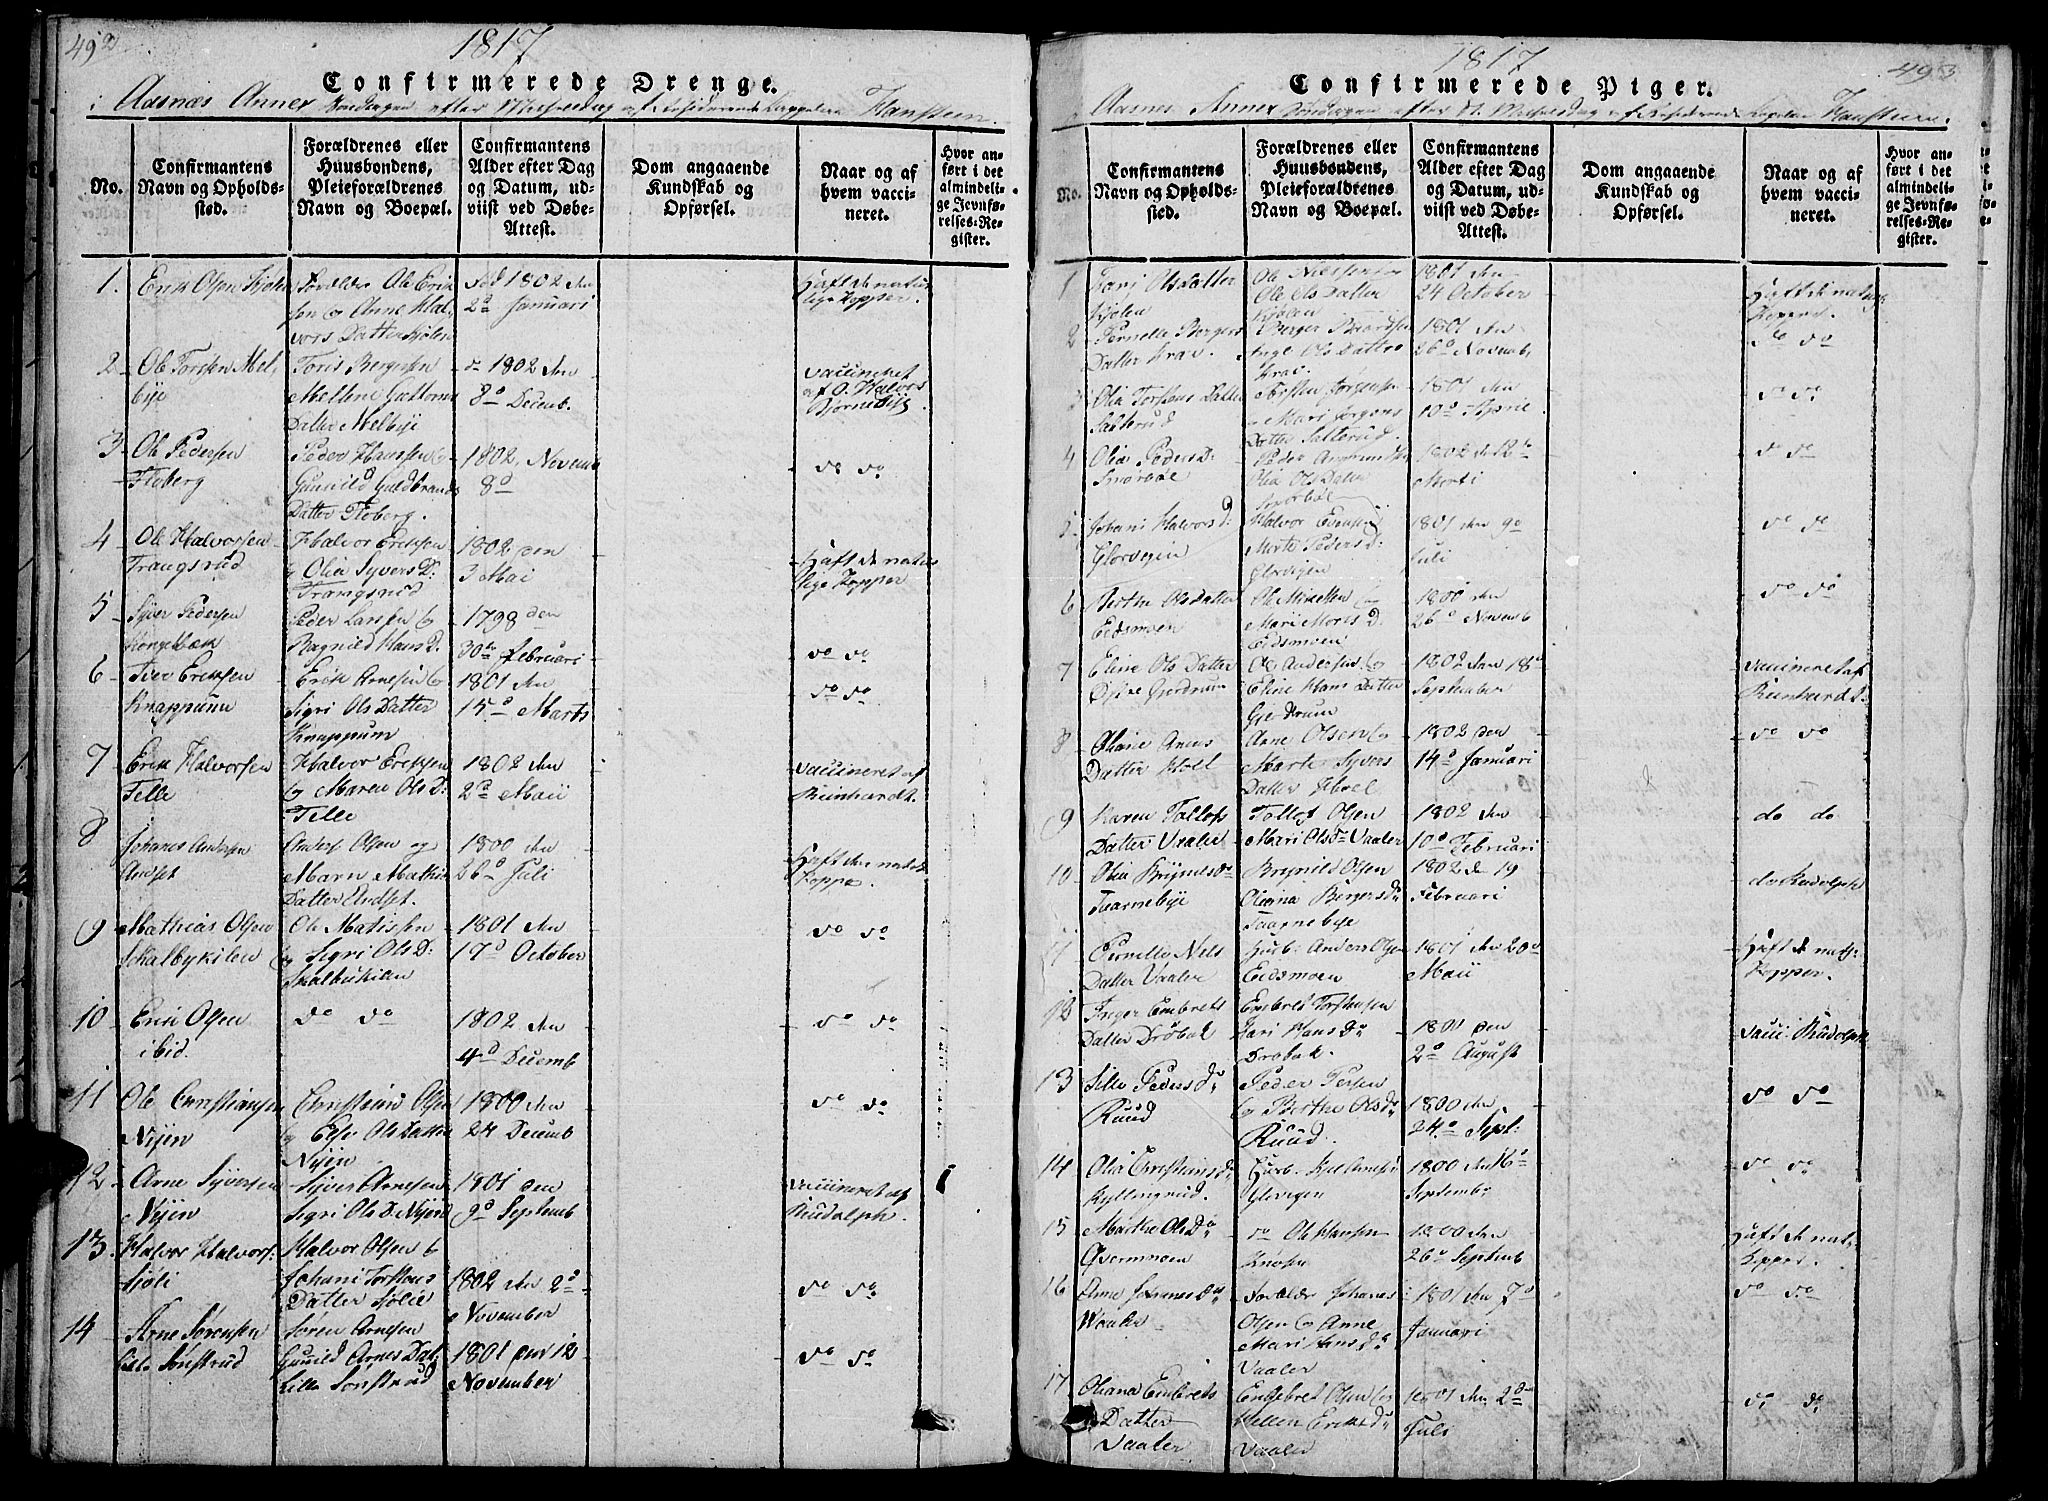 492
1817
Confirmerede Drenge.
i Aasnæs Annex Søndagen efter Michelsdag af residerende Cappelan Hansteen.
No.
Confirmantens Navn og Opholds-sted.
Forældrenes eller Huusbondens, Pleieforældrenes Navn og Boepæl.
Confirmantens Alder efter Dag og Datum, ud-viist ved Døbe-Attest.
Dom angaaende Kundskab og Opførsel.
Naar og af hvem vacci-neret.
Hvor an-ført i det almindeli-ge Jevnfø-relses-Re-gister.
1. Erik Olsen Kjølen
Forældre Ole Erik
sen og Anne Hal
vors Datter Kjølen
fød 1802 den
2d Januari
Haft de natur
lige Kopper.
2 Ole Torsen Mel
bye
Toris Bergersen
Mellene Guttorms
Datter Melbye
do 1802 den
8d Decemb.
vaccineret
af O. Halvors
Bjørneby
3 Ole Pedersen
Floberg
Peder Hanssen og
Gunild Guldbrands
Datter Floberg.
1802, Novemb
8d
do do
4 Ole Halvorsen
Trangsrud
Halvor Eriksen
og Olia Syvers D:
Trangsrud
1802 den
3 Mai
Haft de natur
lige Kopper
5 Syver Pedersen
Kongelbæk
Peder Larssen og
Ragnild Hans D.
1798 den
30te Februari
do do
6 Iver Eriksen
Knappum
Erik Arnesen og
Sigri Ols Datter
Knappum
1801 den
15d Marts
do do
7 Erik Halvorsen
Telle
Halvor Eriksen
og Maren Ols D:
Telle
1802 den
2d Maii
Vaccineret af
Reinhardt.
8 Johanes Andersen
Andset
Anders Olsen og
Maren Mathis
Datter Andset.
1800 den
26d Juli
Haft den natur
Koppe.
9 Mathias Olsen
Skalbykilen
Ole Matissen
og Sigri Ols D:
Skalbukilen
1801 den
17d October
do do
10 Erik Olsen
ibid.
do do
1802 den
4d Decemb
do do
11 Ole Christiansen
Nyen
Christian Olsen
og Else Ols Datter
Nyen
1800 den
24 Decemb
do do
12 Arne Syversen
Nyen
Syver Arnesen
Sigri Ols D. Nyen
1801 den
9d Septemb
Vaccineret af
Rudolph.
13. Halvor Halvors:
Sjøli
Halvor Olsen &
Johani Torstens
Datter Sjølie
1802 den 2d
November
do do
14 Arne Sørensen
Lille Sønstrud
Søren Arnesen
Gunild Arnes Dat:
Lille Sønstrud
1801 den 12
November
do do
493
1817
Confirmerede Piger.
i Aasnes Annex Søndagen efter St. Michelsdag af residerende Capelan Hansteen.
No.
Confirmantens Navn og Opholds-sted.
Forældrenes eller Huusbondens, Pleieforældrenes Navn og Boepæl.
Confirmantens Alder efter Dag og Datum, ud-viist ved Døbe-Attest.
Dom angaaende Kundskab og Opførsel.
Naar og af hvem vacci-neret.
Hvor an-ført i det almindeli-ge Jevnfø-relses-Re-gister.
1 Kari Olsdatter
Kjølen
Ole Nielssen
Ole Ols Datter
Kjølen
1801 den
24 October
Haft de naturlig
Kopper.
2 Pernelle Bergers
Datter Krai.
Berger Baardsen
Inge Ols Datter
Krai.
1801 den
26d Novemb.
do do
3 Olia Torstens Datter
Salterud
Torsten Jørgensen
Mari Jørgens
Datter Salterud.
1801 den
10d Aprie
do do
4 Olia Peders D:
Snorbøl
Peder Amundsen
Olia Ols Datter
Snorbøl
1802 d 12te
Marti
do do
5 Johani Halvors D:
Glorvigen
Halvor Evensen
Marte Peders D:
Glorvigen
1801 den 9d
Juli
do do
6 Berthe Olsdatter
Eidsmoen
Ole Mikelsen og
Mari Moels D.
Eidsmoen
1800 den
26d Novemb
do do
7 Eline Ols Datter
Østre Gjerdrum
Ole Andersen og
Eline Hans Datter
Gjerdrum
1802 den 18d
September
Vaccineret af
Reinhardt.
8 Oliane Arnes
Datter Hoel
Arne Olsen og
Marte Syvers
Datter Hoel
1802 den
14d Januari
do do
9 Karen Tollofs
Datter Vaaler
Tollof Olsen
Mari Olsdr Vaaler
1802 den
10d Februari
do do
10 Olia Brynilds Dr
Taarnebye
Brynild Olsen
Oliana Bergers Dr
Taarnebye
1802 d 19
Februari
do Rudolph
11 Pernelle Niels
Datter Vaaler
Husb. Anders Olsen
Eidsmoen
1801 den 20d
Maii
Haft de nat:
Kopper.
12 Inger Embrets
Datter Drøbak
Embret Torstensen
Kari Hans Dr
Drøbak.
1801 den
2d August
Vacci: Rudolph
13 Sille Peders Dr
Ruud
Peder Persen
og Berthe Ols Dr
Ruud.
1800 den
24d Sept:
do do
14 Olia Christians Dr
Kyllingrud.
Husb.
Glorvigen
1800 den 16d
Septembr
do do
15 Marthe Ols Dr
Øvermoen
do Ole Hansen
1800 den
26d Septemb
Haft de nat.
Kopper.
16 Anne Johannes Dr
Waaler
Forældre Johanes
Olsen og Anne
Mari Hans Dr
Vaaler
1801 den 7d
Januari
do do
17 Oliana Embrets
Datter
Vaaler
Engebret Olsen og
Hellen Eriks Dr
Vaaler
1801 den 2den
Juli
do do